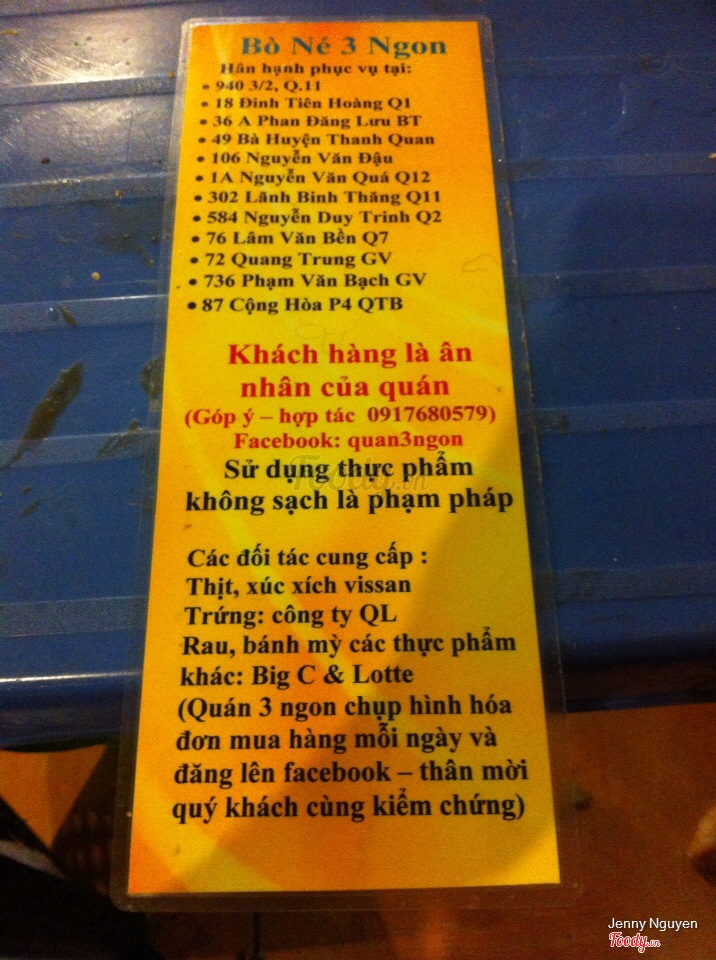 Bò Né 3 Ngon
Hân hạnh phục vụ tại:
• 940 3/2, Q.11
• 18 Đinh Tiên Hoàng Q1
• 36 A Phan Đăng Lưu BT
• 49 Bà Huyện Thanh Quan
• 106 Nguyễn Văn Đậu
• 1A Nguyễn Văn Quá Q12
• 302 Lãnh Binh Thăng Q11
• 584 Nguyễn Duy Trinh Q2
• 76 Lâm Văn Bền Q7
• 72 Quang Trung GV
• 736 Phạm Văn Bạch GV
• 87 Cộng Hòa P4 QTB
Khách hàng là ân
nhân của quán
(Góp ý – hợp tác 0917680579)
Facebook: quan3ngon
Sử dụng thực phẩm
không sạch là phạm pháp
Foody.vn
Các đối tác cung cấp :
Thịt, xúc xích vissan
Trứng: công ty QL
Rau, bánh mỳ các thực phẩm
khác: Big C & Lotte
(Quán 3 ngon chụp hình hóa
đơn mua hàng mỗi ngày và
đăng lên facebook – thân mời
quý khách cùng kiểm chứng)
Jenny Nguyen
Foody.vn